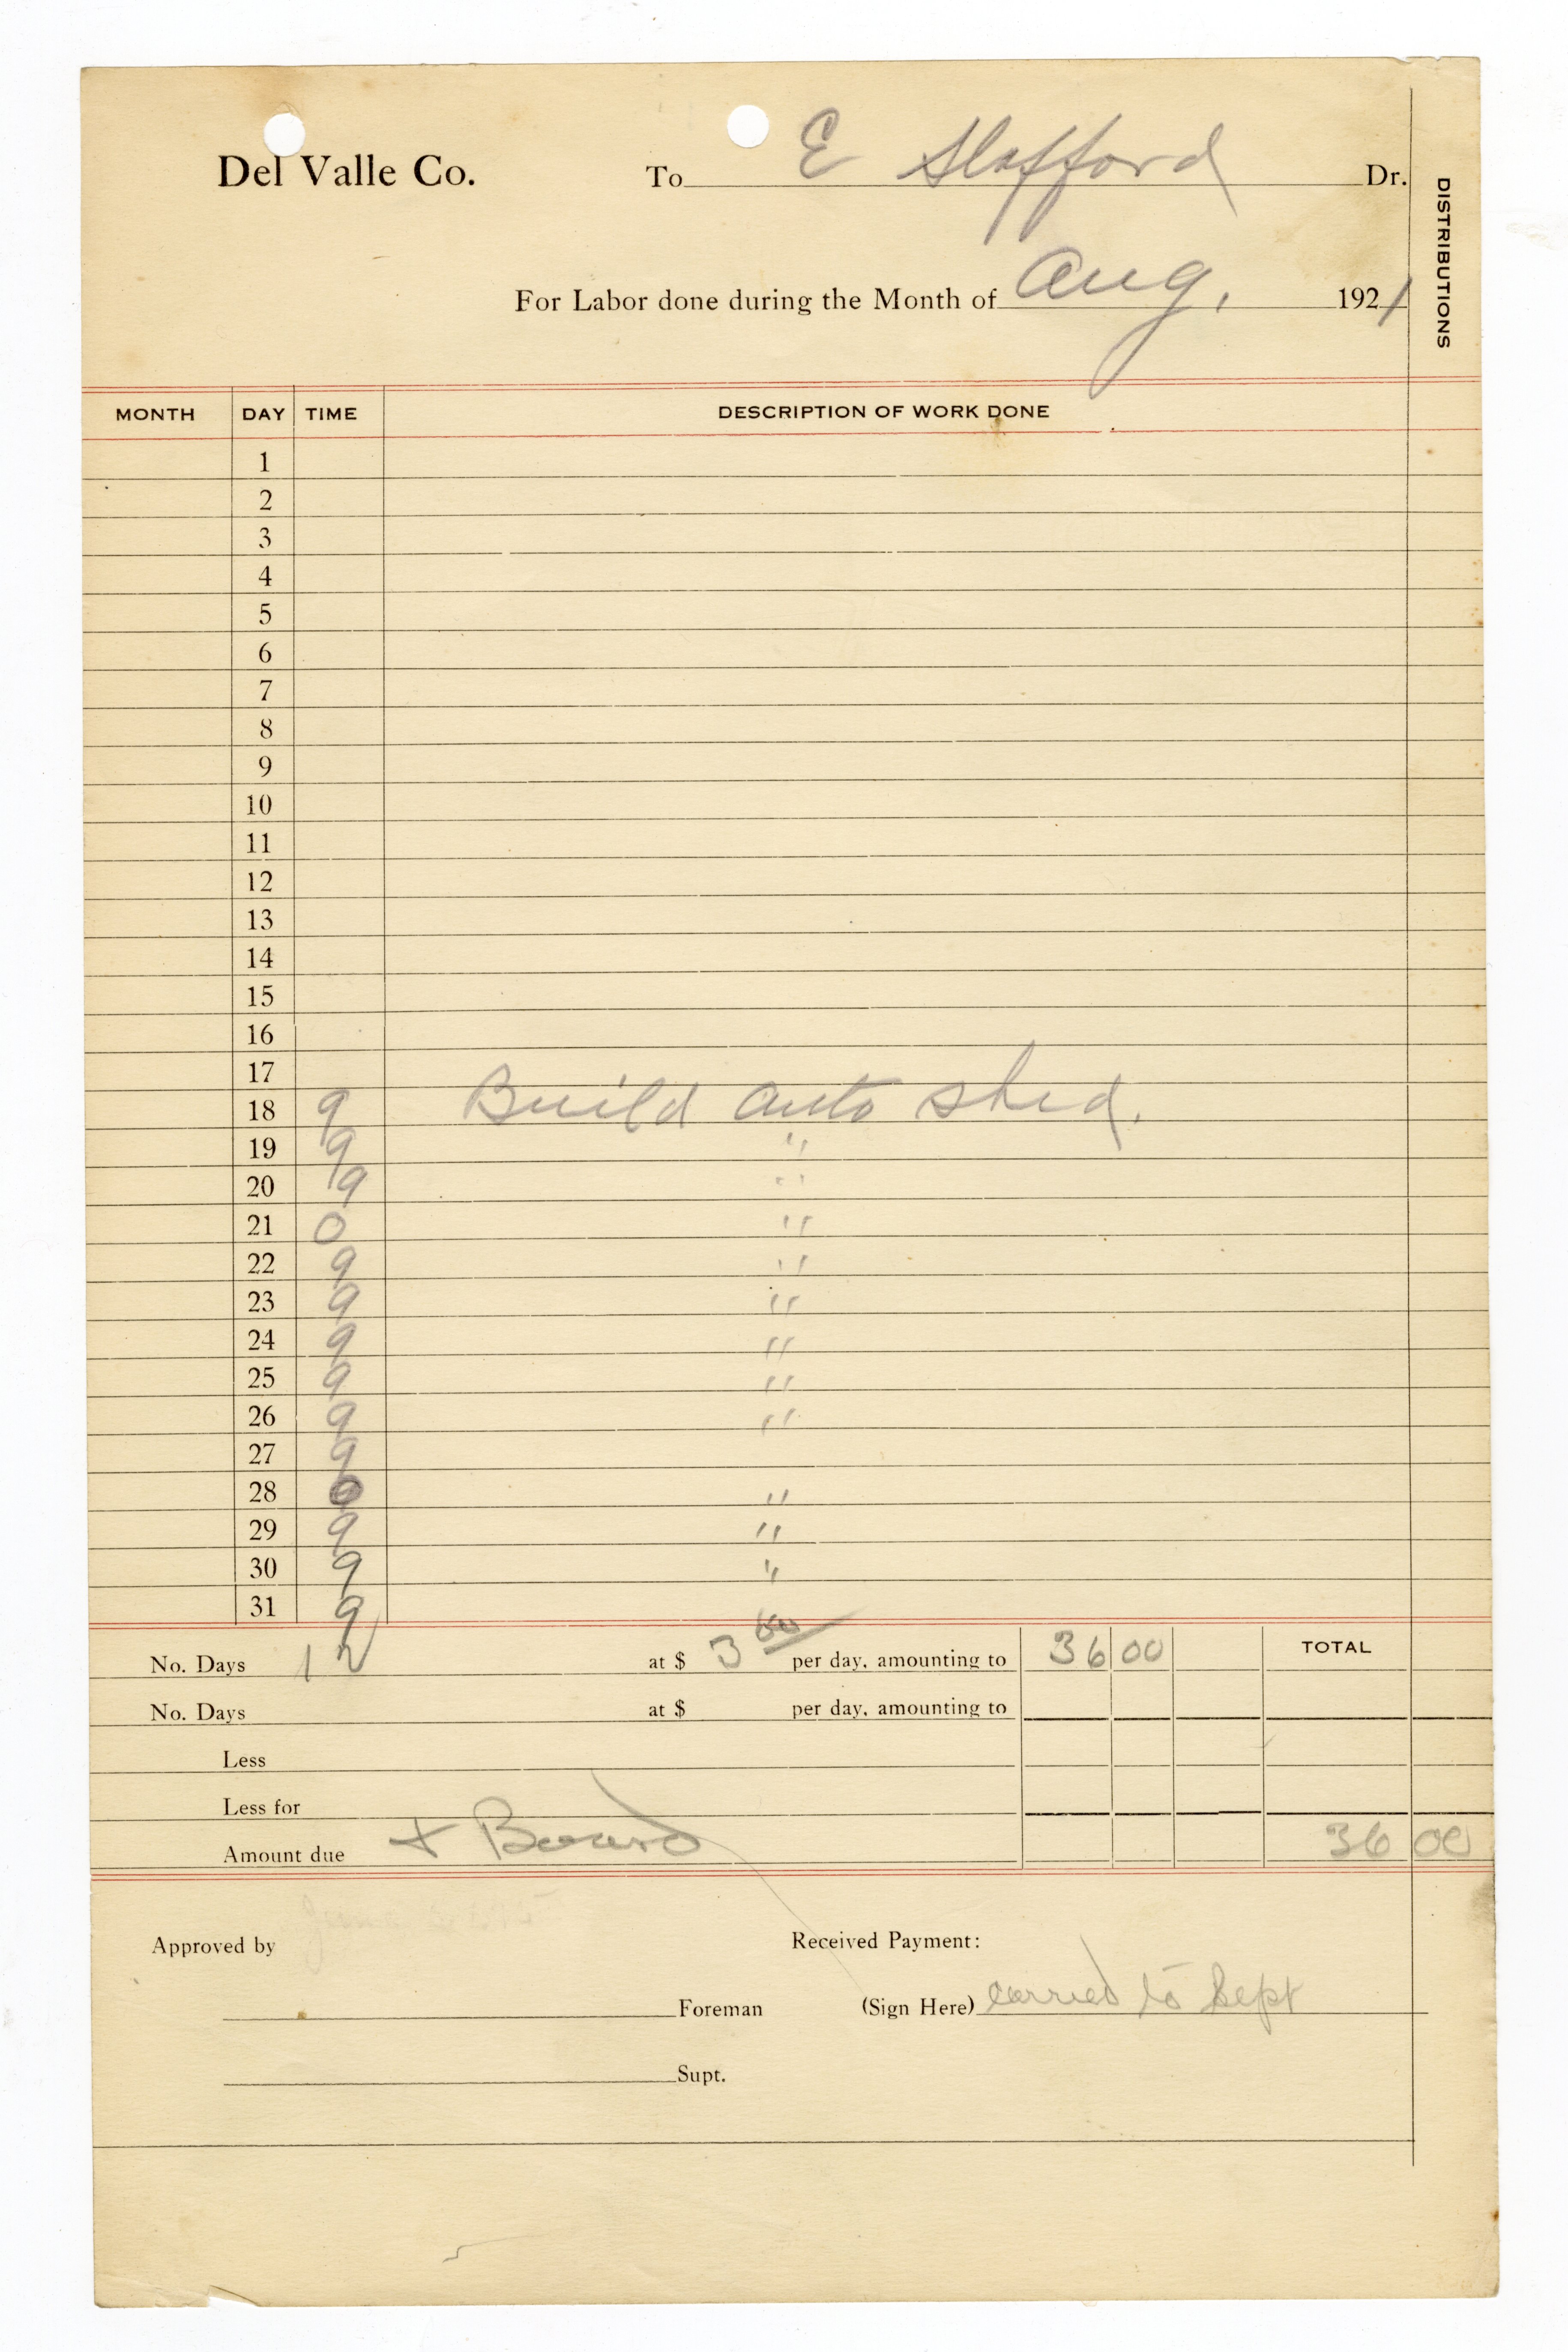 Del Valle Co. To E Stafford Dr.
DISTRIBUTIONS
For Labor done during the Month of Aug. 1921
MONTH DAY TIME DESCRIPTION OF WORK DONE
1
2
3
4
5
6
7
8
9
10
11
12
13
14
15
16
17
18 9 Build auto shed.
19 9 "
20 9 "
21 0 "
22 9 "
23 9 "
24 9 "
25 9 "
26 9 "
27 9
28 0 "
29 9 "
30 9 "
31 9
No. Days 12 at $ 3 00 per day, amounting to 36 00 TOTAL
No. Days at $ per day, amounting to
Less
Less for
Amount due + Board 36 00
Approved by Received Payment:
Foreman (Sign Here) carried to Sept
Supt.